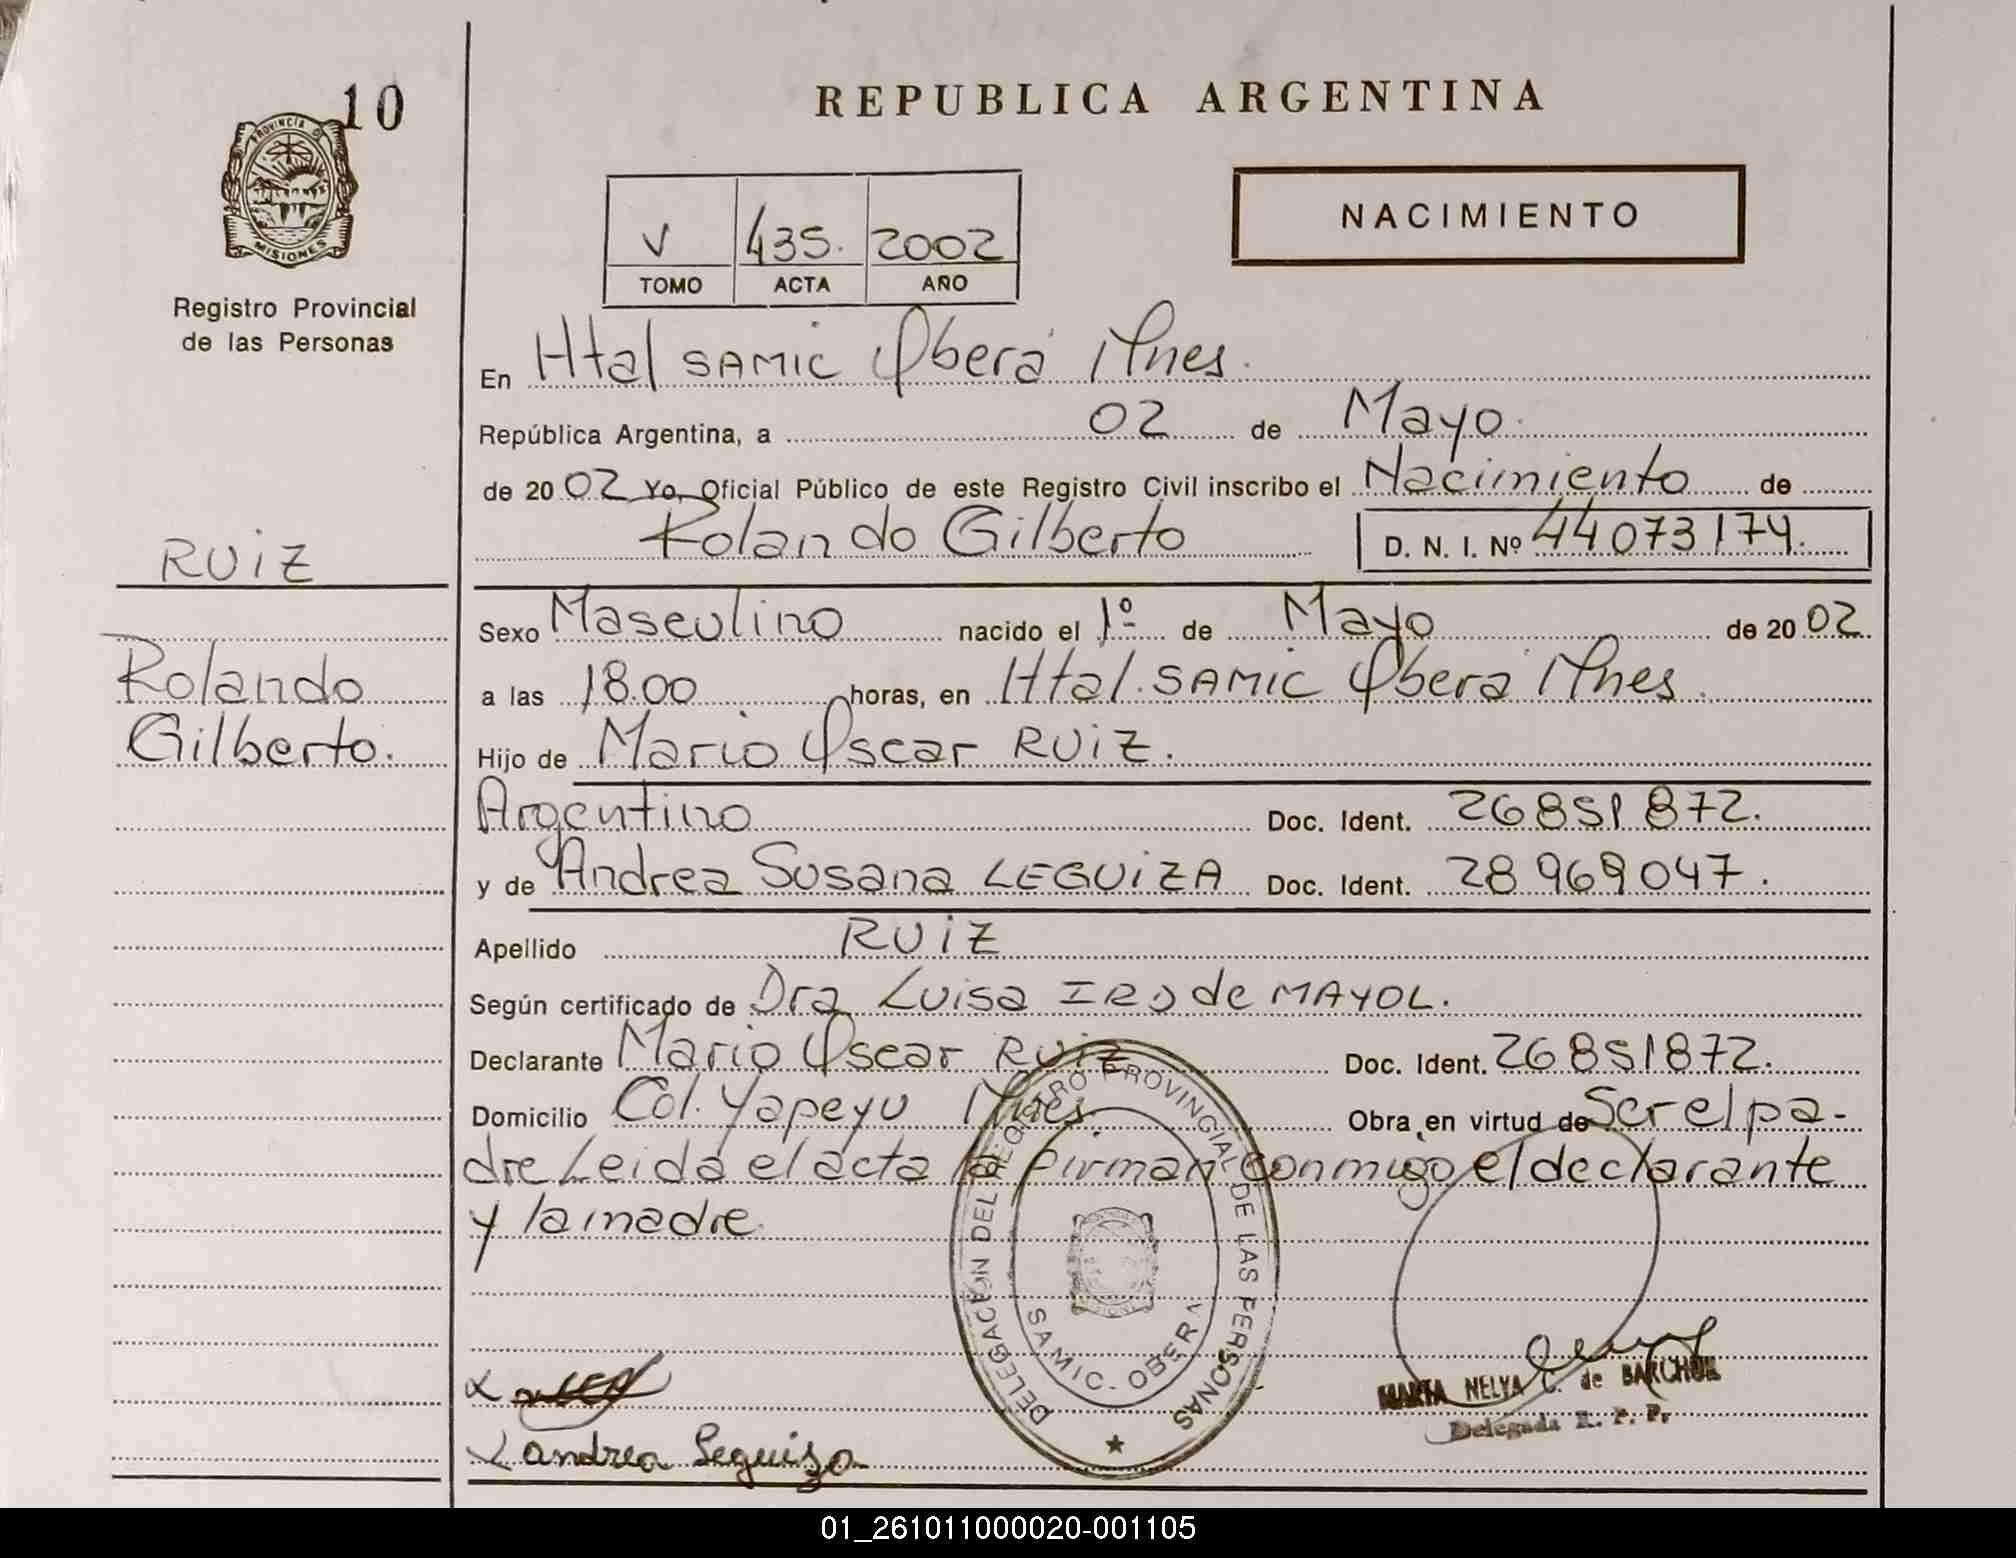 10
PROVINCIA D
MISIONES
Registro Provincial
de las Personas
RUiZ
Rolando
Gilberto.
REPUBLICA ARGENTINA
V 435. 2002
TOMO ACTA AÑO
NACIMIENTO
En Htal SAMIC Oberá Mnes.
República Argentina, a 02 de Mayo.
de 20 02 Yo, Oficial Público de este Registro Civil inscribo el Nacimiento de
Rolando Gilberto D. N. I. Nº 44073174.
Sexo Masculino nacido el 1º de Mayo de 20 02
a las 18.00 horas, en Htal. SAMIC Oberá Mnes.
Hijo de Mario Oscar RUiZ.
Argentino Doc. Ident. 26851872.
y de Andrea Susana LEGUiZA Doc. Ident. 28969047.
Apellido RUiZ
Según certificado de Dra Luisa de MAYOL.
Declarante Mario Oscar RUiZ Doc. Ident. 26851872.
Domicilio Col. Yapeyu Mnes. Obra en virtud de Ser el pa-
dre Leida el acta la firman conmigo el declarante
y la madre.
DELEGACION DEL REGISTRO PROVINCIAL DE LAS PERSONAS
SAMIC - OBERA
MARTA NELYA C. de BARCHUK
Delegada R. P. P.
andrea Leguiza
01_261011000020-001105